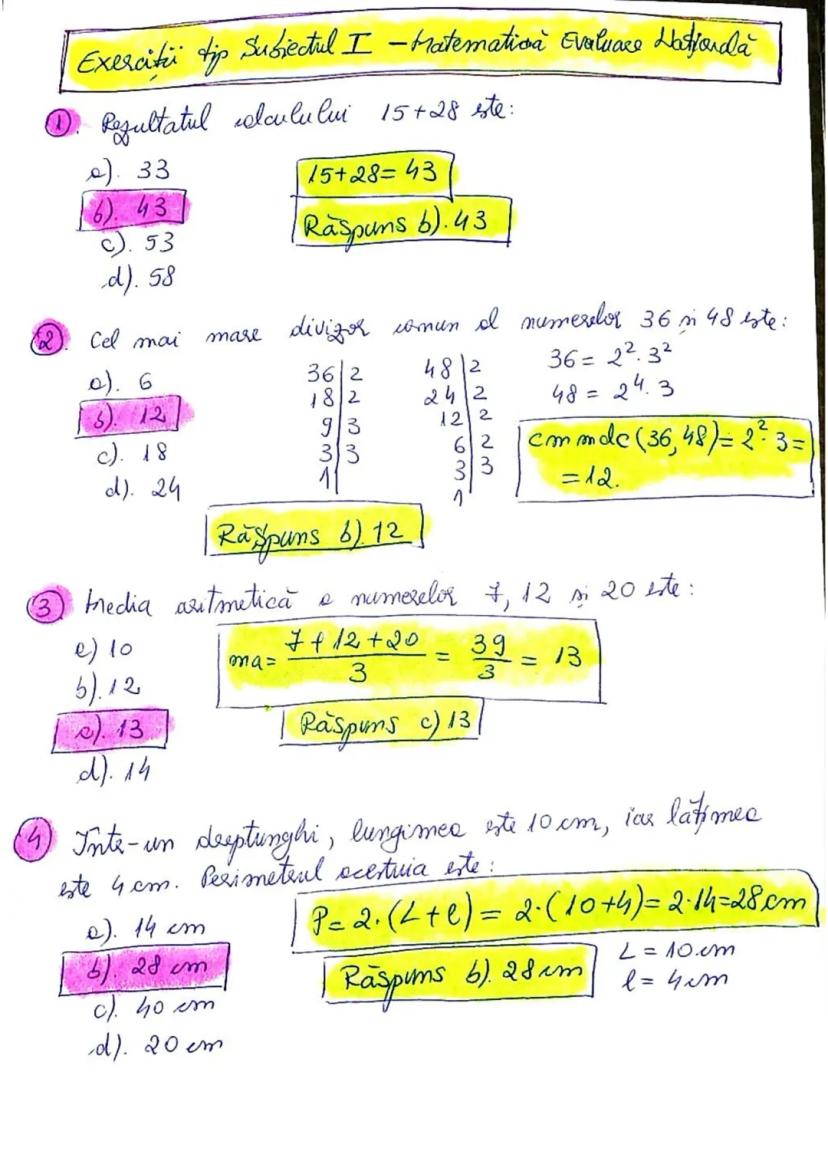 Exerciții tip Subiectul I - Matematică Evaluare Națională
1). Rezultatul calculului 15+28 este:
a). 33
b). 43
c). 53
d). 58
15+28= 43
Răspuns b). 43
2). Cel mai mare divizor comun al numerelor 36 și 48 este:
a). 6
b). 12
c). 18
d). 24
36 | 2
18 | 2
9 | 3
3 | 3
1 |
48 | 2
24 | 2
12 | 2
6 | 2
3 | 3
1
36 = 2². 3²
48 = 2⁴. 3
cmmdc (36,48) = 2². 3 =
= 12.
Răspuns b). 12
3) Media aritmetică a numerelor 7, 12 și 20 este:
a) 10
b). 12
c). 13
d). 14
ma= (7+12+20)/3 = 39/3 = 13
Răspuns c) 13
4) Într-un dreptunghi, lungimea este 10 cm, iar lățimea
este 4 cm. Perimetrul acestuia este:
a). 14 cm
b). 28 cm
c). 40 cm
d). 20 cm
P= 2.(L+l) = 2.(10+4)= 2.14=28cm
Răspuns b). 28 cm
L = 10 cm
l = 4 cm